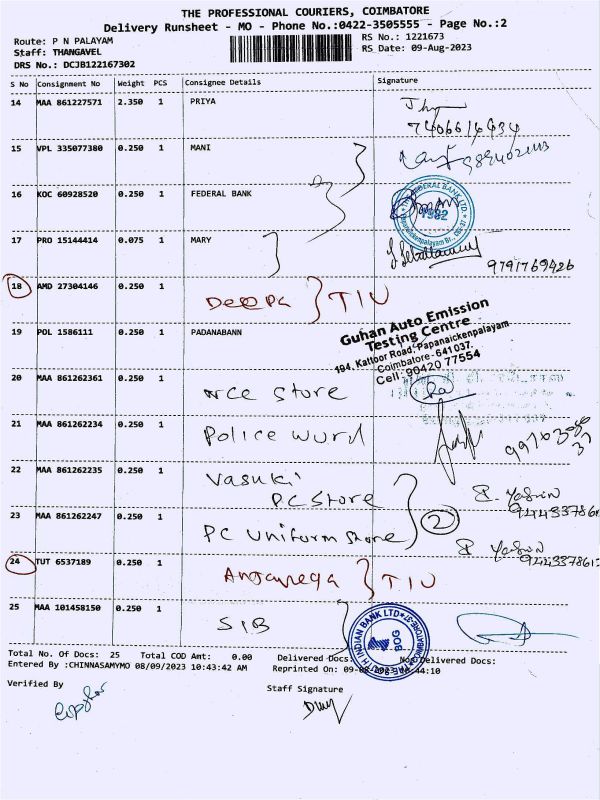 THE PROFESSIONAL COURIERS, COIMBATORE
Delivery Runsheet - MO - Phone No.:0422-3505555 - Page No.:2
Route: P N PALAYAM
RS No.: 1221673
Staff: THANGAVEL
RS Date: 09-Aug-2023
DRS No.: DCJB122167302
S No Consignment No Weight PCS Consignee Details Signature
14 MAA 861227571 2.350 1 PRIYA
7406616934
15 VPL 335077380 0.250 1 MANI
16 KOC 60928520 0.250 1 FEDERAL BANK
17 PRO 15144414 0.075 1 MARY
9791769426
18 AMD 27304146 0.250 1 Deepa } TIU
19 POL 1586111 0.250 1 PADANABANN
Guhan Auto Emission
Testing Centre
194, Kattoor Road, Papanaickenpalayam
Coimbatore - 641 037.
Cell: 90420 77554
20 MAA 861262361 0.250 1 Nce Store
21 MAA 861262234 0.250 1 Police wurd
22 MAA 861262235 0.250 1 Vasuki
PC Store
23 MAA 861262247 0.250 1 PC Uniform Store
2
24 TUT 6537189 0.250 1 Anjaneya } TIU
25 MAA 101458150 0.250 1 SIB
SOUTH INDIAN BANK LTD
BOG
Total No. Of Docs: 25 Total COD Amt: 0.00 Delivered Docs: Not Delivered Docs:
Entered By :CHINNASAMYMO 08/09/2023 10:43:42 AM Reprinted On: 09-08-2023
Verified By
Staff Signature